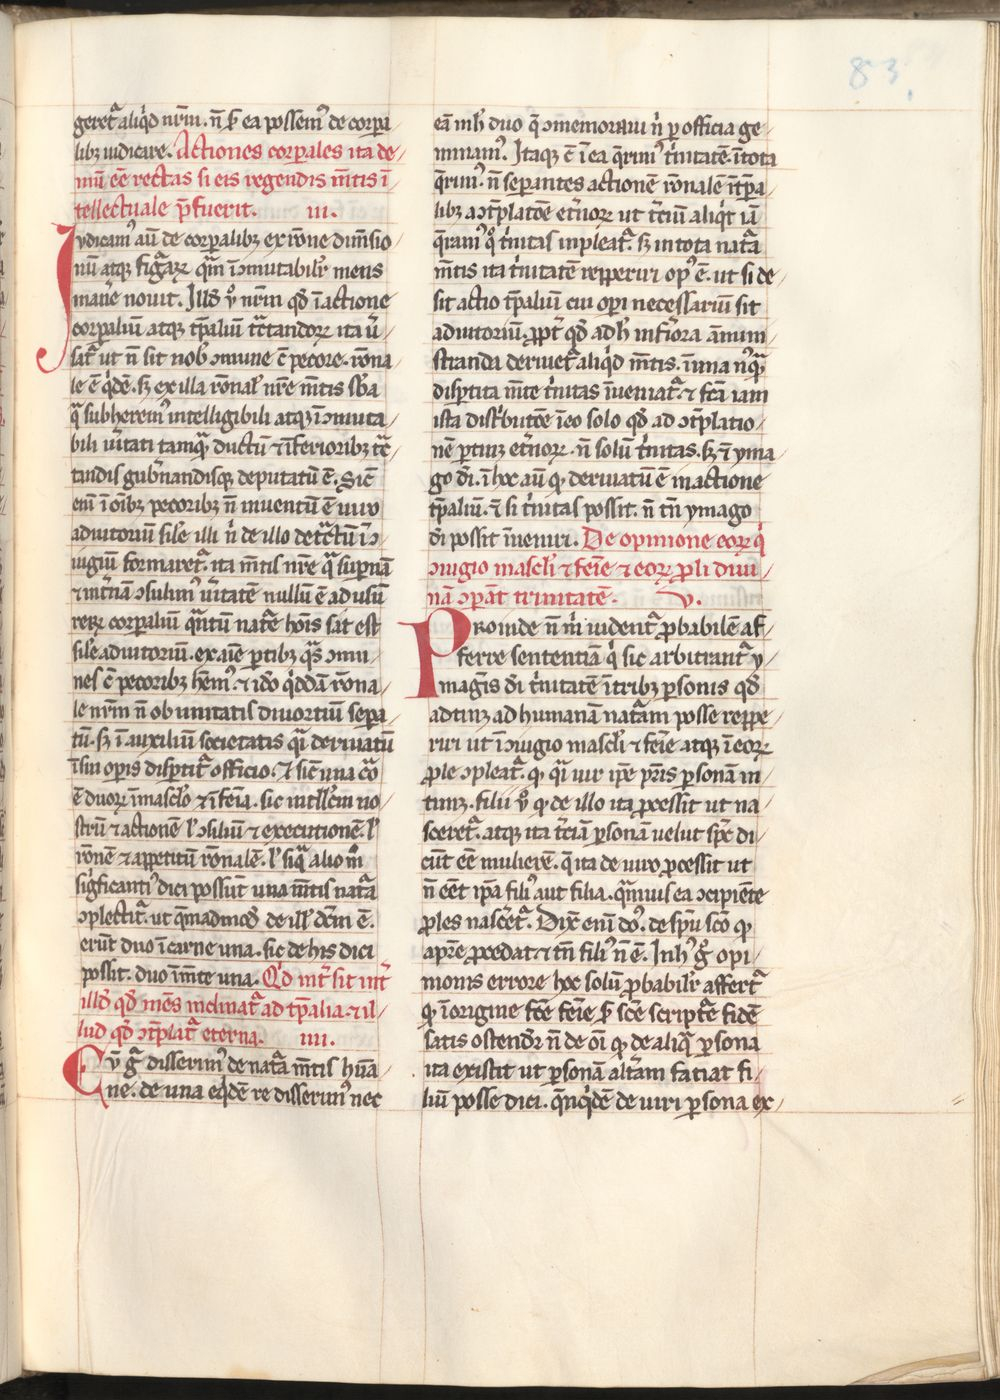 83
geret᷑ aliq̇d nr̄m. n̄ s̄ ea possem᷒ de corpa
libꝫ iudicare. Actiones corꝑales ita de⸗
mū eē rectas si eis regendis m̄tis ī
tellectuale p̄fuerit. iii.
Iudicam᷒ aū de corꝑalibꝫ ex rōne dim̄sio
nū atqꝫ figᷓaꝝ qᷓm īɔmutabilr̄ mens
mane novit. Illd̄ v̊ nr̄m qd̄ ī actione
corꝑaliū atqꝫ tꝑaliū tᷓctandoꝝ ita v̄
sat᷑ ut n̄ sit nob̄ ɔmune c̄ pecore. rōna
le ē q̇dē. sꝫ ex illa rōnal̄ nr̄e m̄tis sb̄a
qᷓ subherem᷒ intelligibili atqꝫ īɔmuta
bili v̄itati tamqᷓ ductū ⁊ īferioribꝫ tᷓc
tandis gub̄nandisqꝫ deputatū ē. Sic̄
eni ī oībꝫ pecoribꝫ n̄ inuentū ē uiro
adiutoriū sile illi n̄ de illo detᷓctū īɔ
iugiū formaret᷑. ita m̄tis nr̄e qᷓ suꝑnā
⁊ īt̄nā ɔsulim᷒ v̄itatē nullū ē ad usū
reꝝ corꝑaliū qᷓntū nat̄e hoīs sat est
sile adiutoriū. ex aīe ꝑtibꝫ qᷓs ɔmu⸗
nes c̄ pecoribꝫ hem᷒. ⁊ ido̊ q̇ddā rōna⸗
le nr̄m n̄ ob unitatis diuortiū sepa
tū. sꝫ ī auxiliū societatis qᷓi deriuatū
ī sui opis disꝑtit᷑ officio. ⁊ sic̄ una c̄o
ē duoꝝ ī masclo̊ ⁊ ī feīa. sic intll̄cm no⸗
strū ⁊ actionē l̄ ɔsiliū ⁊ executionē. l̄
rōnē ⁊ appetitū rōnalē. l̄ si qᷓ alio m̊
sig̊ficanti᷒ dici possūt una m̄tis natᷓa
ɔplectit᷑. ut qm̄admod̄ de ill̄ dc̄m ē.
erūt duo ī carne una. sic de his dici
possit. duo ī m̄te una. Qd̄ int̄sit int̄
illd̄ qd̄ mēs inclinat᷑ ad tꝑalia. ⁊ il⸗
lud qd̄ ɔt̄plat᷑ eterna. iiii.
Cū g̊ disserim᷒ de natᷓa m̄tis hūa⸗
ne. de una eq̇dē re disserim᷒ nec
eā in h̄ duo q̄ ɔmemoraui n̄ ꝑ officia ge⸗
minam᷒. Itaqꝫ c̄ ī ea q̄rim᷒ t̊nitatē. ī tota
q̄rim᷒. n̄ seꝑantes actionē rōnalē ī tꝑa⸗
libꝫ a ɔt̄platōe et̄noꝝ ut t̄ciū aliq̇t iā
q̄ram᷒ q̊ t̊nitas inpleat᷑. sꝫ in tota natᷓa
m̄tis ita t̊nitatē repperiri op᷒ ē. ut si de⸗
sit actio tꝑaliū cui oꝑi necessariū sit
adiutoriū. ꝓpt̄ qd̄ ad h̄ inf̄iora ām̄ini⸗
stranda deriuet᷑ aliq̇d m̄tis. ī una n̄qᷓ⸗
disꝑtita m̄te t̊nitas īueniat᷑. ⁊ fc̄a iam
ista dist̊butōe ī eo solo qd̄ ad ɔt̄platio⸗
nē ꝑtinꝫ et̄noꝝ. n̄ solū t̊nitas. sꝫ ⁊ yma⸗
go dī. ī hoc aū qͥ deriuatū ē in actione
tꝑaliū. ⁊ si t̊nitas possit. n̄ tn̄ ymago
dī possit īueniri. De opinione eoꝝ q̇
ɔiugio mascl̄i ⁊ feīe ⁊ eoꝝ ꝓli diui⸗
nā ɔꝑāt trinitatē. V.
Proinde n̄ m̊ uident᷑ ꝓbabilē af⸗
ferre sententiā q̇ sic arbitrant᷑ y⸗
maḡis dī t̊nitatē ī tribꝫ ꝑsonis qd̄
ad tinꝫ ad humanā natᷓam posse reppe⸗
riri ut ī ɔiugio mascl̄i ⁊ feīe atqꝫ ī eoꝝ
ꝓle ɔpleat᷑. qͥ qᷓi uir ip̄e pr̄is ꝑsonam in⸗
tinꝫ. filii v̊ qͥ de illo ita ꝓcessit ut na⸗
sceret᷑. atqꝫ ita t̄ciā ꝑsonā uelut sp̄c di⸗
cūt eē mulierē. q̄ ita de uiro ꝓcessit ut
n̄ eēt ip̄a fili᷒ aut filia. qᷓmuis ea ɔcipiente
ꝓles nascet᷑. Dix̄ eni do᷒. de sp̄u sc̄o qͥ
a pr̄e ꝓcedat. ⁊ tn̄ fili᷒ n̄ ē. In h᷒ g̊ opi⸗
nionis errore hoc solū ꝓbabilr̄ affert᷑
qͥ ī origine fc̄e feīe s̄ sc̄e script̄e fidē
satis ostendr̄ n̄ de oī qͥ de aliqᷓ ꝑsona
ita existit ut ꝑsonā alt̄am faciat fi⸗
liū posse dici. qn̄q̇dē de uiri ꝑsona ex⸗